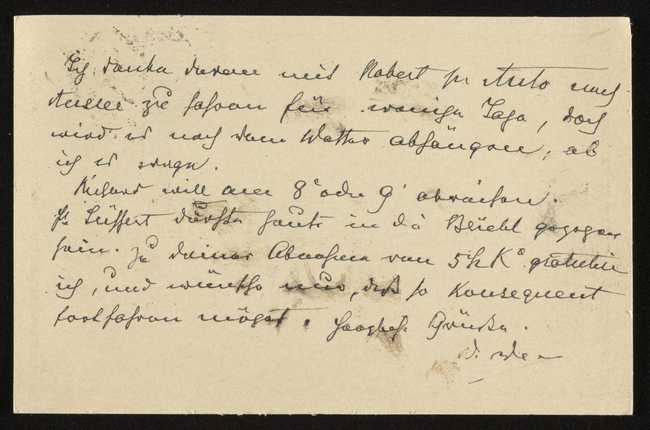 Ich denke daran mit Robert pr Auto nach
Aussee zu fahren für wenige Tage, doch
wird es nach dem Wetter abhängen, ob
ich es wage.
Richard will am 8t oder 9t abreisen.
Fr. dürfte heute in die gezogen
sein. Zu deiner Abnahme von 5 1/2 Ko gratuliere
ich, und wünsche nur, daß so konsequent
fortfahren mögest. Herzliche Grüße.